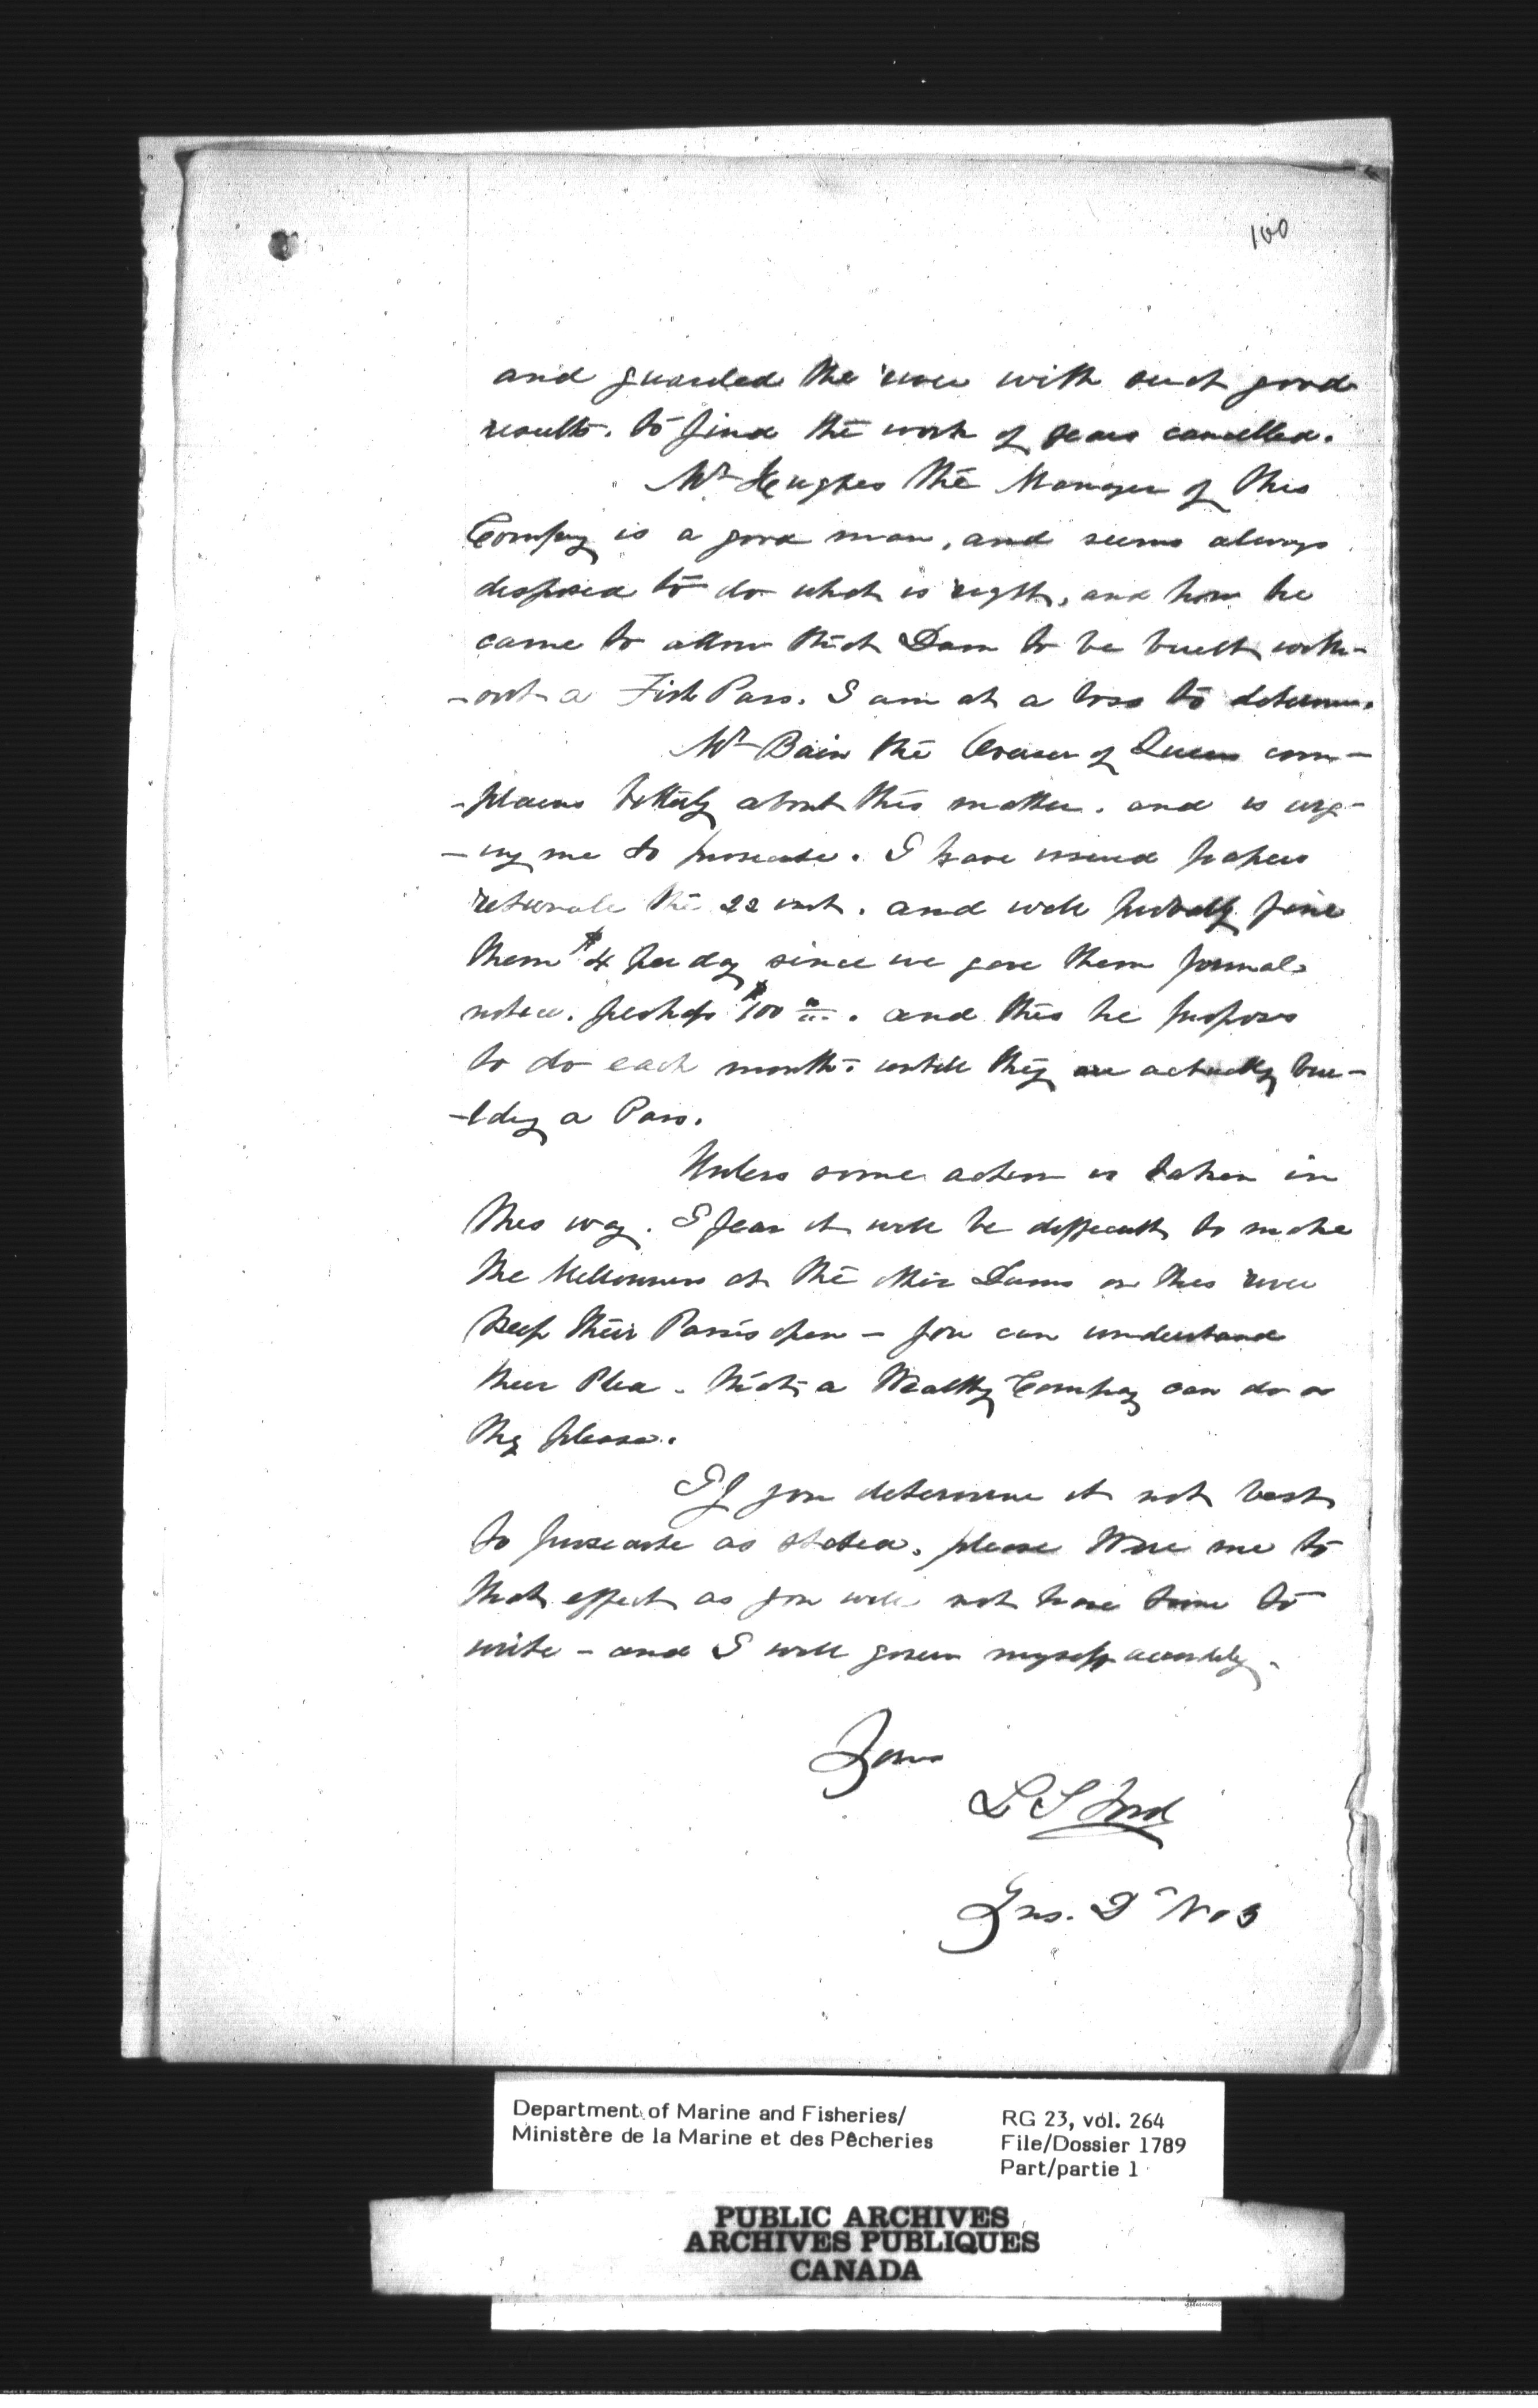 100
and guarded the river with such good
results. to find the work of years cancelled.
Mr Hughes the Manager of this
Company is a good man, and seems always
disposed to do what is right, and how he
came to allow that Dam to be built with-
-out a Fish Pass. I am at a loss to determine.
Mr Bain the Overseer of Queens com-
-plains bitterly about this matter. and is urg-
-ing me to prosecute. I have issued papers
returnable the 22 inst. and will probably fine
them $4 per day since we gave them formal
notice. perhaps $100 00/00. and this he proposes
to do each month. untill they are actually bui-
-lding a Pass.
Unless some action is taken in
this way. I fear it will be difficult to make
the Millowners at the other Dams on this river
keep their Passes open - you can understand
their Plea. that a Wealthy Company can do as
they please.
If you determine it not best
to prosecute as stated. please Wire me to
that effect as you will not have time to
write - and I will govern myself accordingly.
Yours
L S Ford
Ins. D- No 3
Department of Marine and Fisheries/
Ministère de la Marine et des Pêcheries
RG 23, vol. 264
File/Dossier 1789
Part/partie 1
PUBLIC ARCHIVES
ARCHIVES PUBLIQUES
CANADA